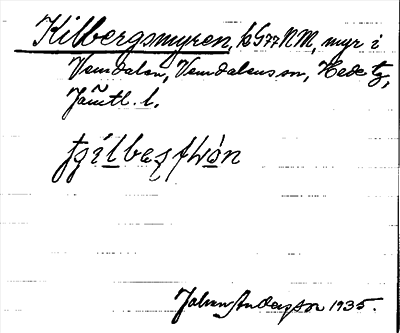 Kilbergsmyren, k G77NM, myr i
Vemdalen, Vemdalens sn, Hede tg,
Jämtl. l.
Johan Anderson 1935.